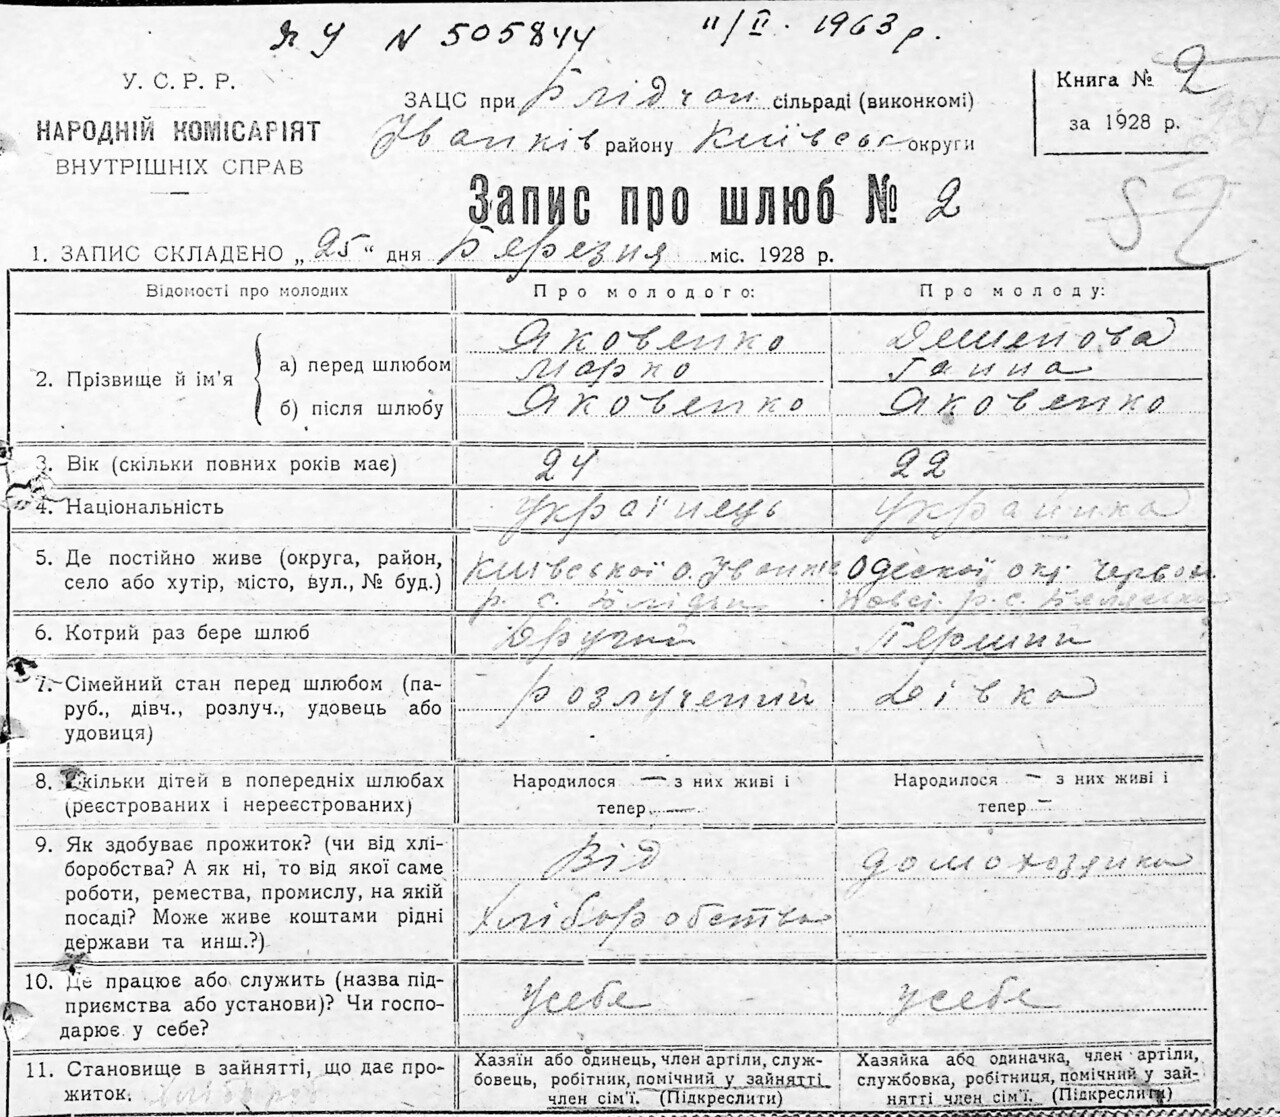 ЯУ N 505844 11/II. 1963 р.
У. С. Р. Р.
НАРОДНІЙ КОМІСАРІЯТ
ВНУТРІШНІХ СПРАВ
ЗАЦС при Блідчан сільраді (виконкомі)
Іванків району Київськ округи
Книга № 2
за 1928 р.
52
Запис про шлюб № 2
1. ЗАПИС СКЛАДЕНО „25“ дня Березня міс. 1928 р.
Відомості про молодих Про молодого: Про молоду:
2. Прізвище й ім’я
а) перед шлюбом Яковенко Марко Ганна
б) після шлюбу Яковенко Яковенко
3. Вік (скільки повних років має) 24 22
4. Національність Українець Українка
5. Де постійно живе (округа, район, село або хутір, місто, вул., № буд.)
Київської о. Іванк
р. с. Блідчи
Одеської окр. Червон
р. с.
6. Котрий раз бере шлюб Другий Перший
7. Сімейний стан перед шлюбом (па-
руб., дівч., розлуч., удовець або
удовиця)
розлучений Дівка
8. Скільки дітей в попередніх шлюбах
(реєстрованих і нереєстрованих)
Народилося — з них живі і
тепер —
Народилося — з них живі і
тепер —
9. Як здобуває прожиток? (чи від хлі-
боробства? А як ні, то від якої саме
роботи, ремества, промислу, на якій
посаді? Може живе коштами рідні
держави та инш.?)
Від
хліборобства
домохозяйка
10. Де працює або служить (назва під-
приємства або установи)? Чи госпо-
дарює у себе?
усебе усебе
11. Становище в зайнятті, що дає про-
житок.
Хазяїн або одинець, член артіли, служ-
бовець, робітник, помічний у зайнятті
член сім’ї. (Підкреслити)
Хазяйка або одиначка, член артіли,
службовка, робітниця, помічний у зай-
нятті член сім’ї. (Підкреслити)